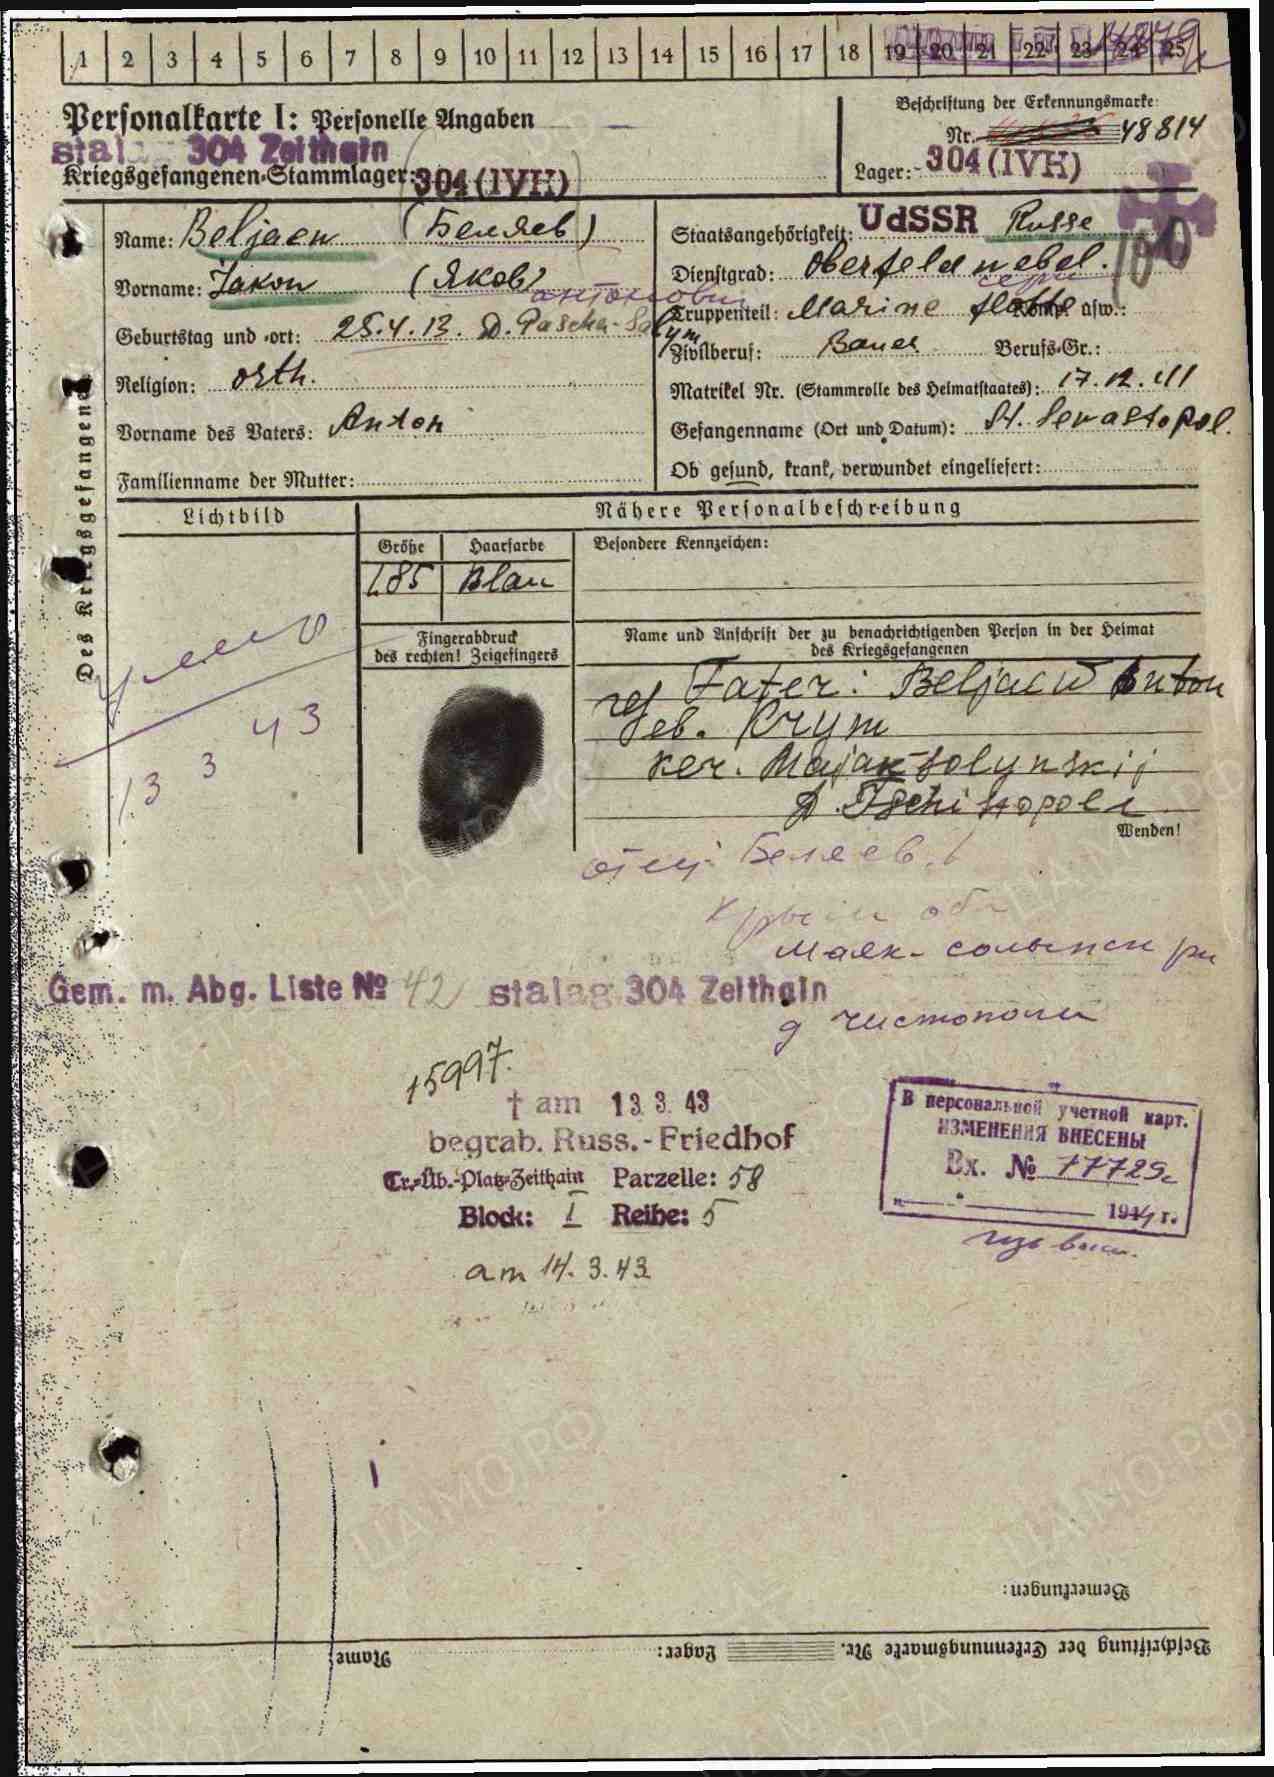 1 2 3 4 5 6 7 8 9 10 11 12 13 14 15 16 17 18 19 20 21 22 23 24 25
Personalkarte I: Personelle Angaben
Beschriftung der Erkennungsmarke:
Nr. 48814
stalag 304 Zeithain
Kriegsgefangenen-Stammlager: 304 (IVH)
Lager: 304 (IVH)
Des Kriegsgefangenen
Name: Beljaew (Беляев)
Vorname: Jakow (Яков)
Антонович
Geburtstag und -ort: 25.4.13. D.
Religion: orth.
Vorname des Vaters: Anton
Familienname der Mutter:
Staatsangehörigkeit: UdSSR Russe
Dienstgrad: Oberfeldwebel.
Truppenteil: Marine flotte Komp. usw.:
Zivilberuf: Bauer Berufs-Gr.:
Matrikel Nr. (Stammrolle des Heimatstaates): 17.12.41
Gefangenname (Ort und Datum): St. Sewastopol.
Ob gesund, krank, verwundet eingeliefert:
Lichtbild
Nähere Personalbeschreibung
Größe Haarfarbe Besondere Kennzeichen:
1.85 Blau
Fingerabdruck
des rechten! Zeigefingers
Name und Anschrift der zu benachrichtigenden Person in der Heimat
des Kriegsgefangenen
Fater: Beljaew Anton
Geb. Krym
Ker. Majak-Solynskij
D. Tschistopola
Wenden!
умер
13 3 43
отец Беляев.
Крым обл
Маяк-солынски рн
д Чистополи
Gem. m. Abg. Liste № 42 stalag 304 Zeithain
15997.
† am 13. 3. 43
begrab. Russ.-Friedhof
Tr.-Üb.-Platz-Zeithain Parzelle: 58
Block: I Reihe: 5
am 14. 3. 43
В персональной учетной карт.
ИЗМЕНЕНИЯ ВНЕСЕНЫ
Вх. № 77729с
194 г.
Bemerkungen:
Beschriftung der Erkennungsmarke Nr. Lager: Name: